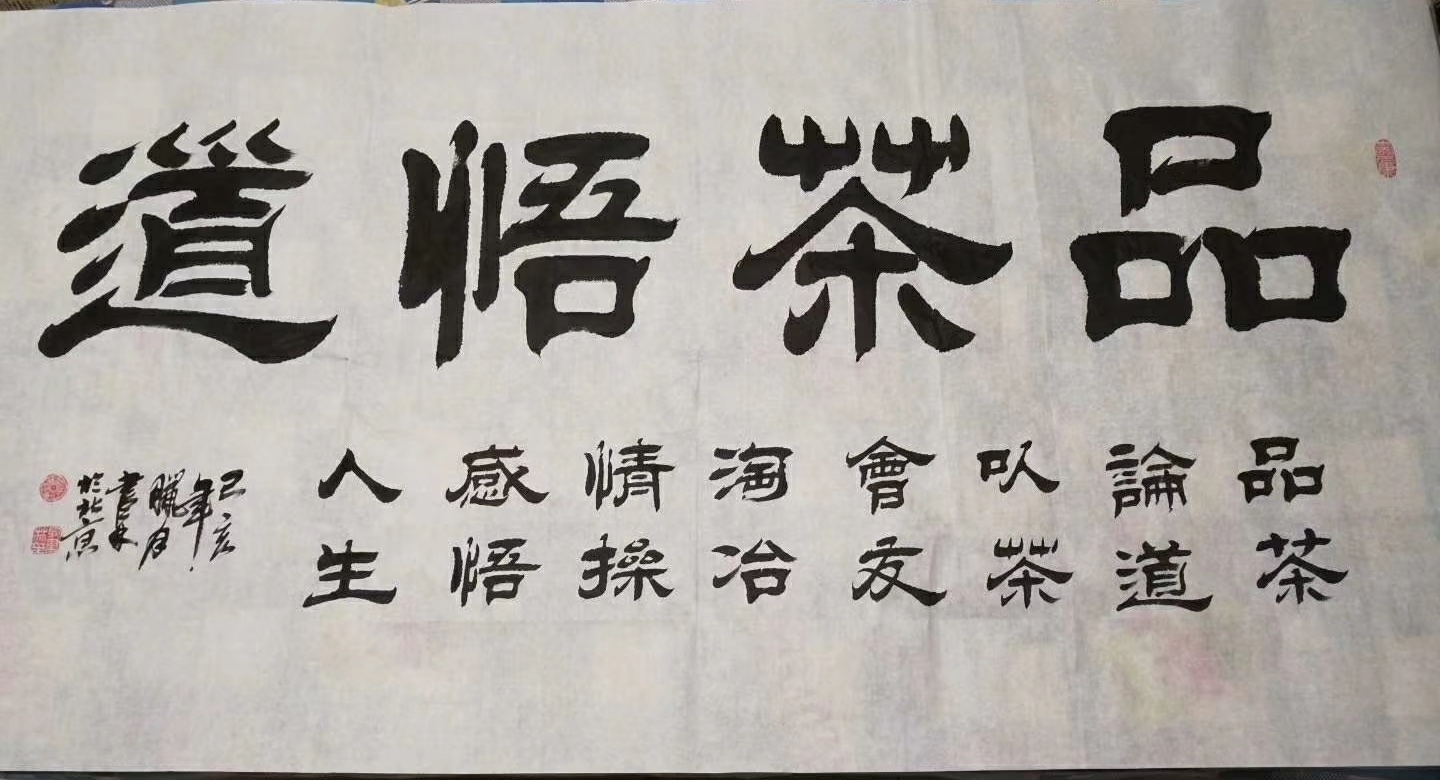 品茶悟道
品茶
論道
以茶
會友
淘冶
情操
感悟
人生
己亥
年
臘月
書
於北京